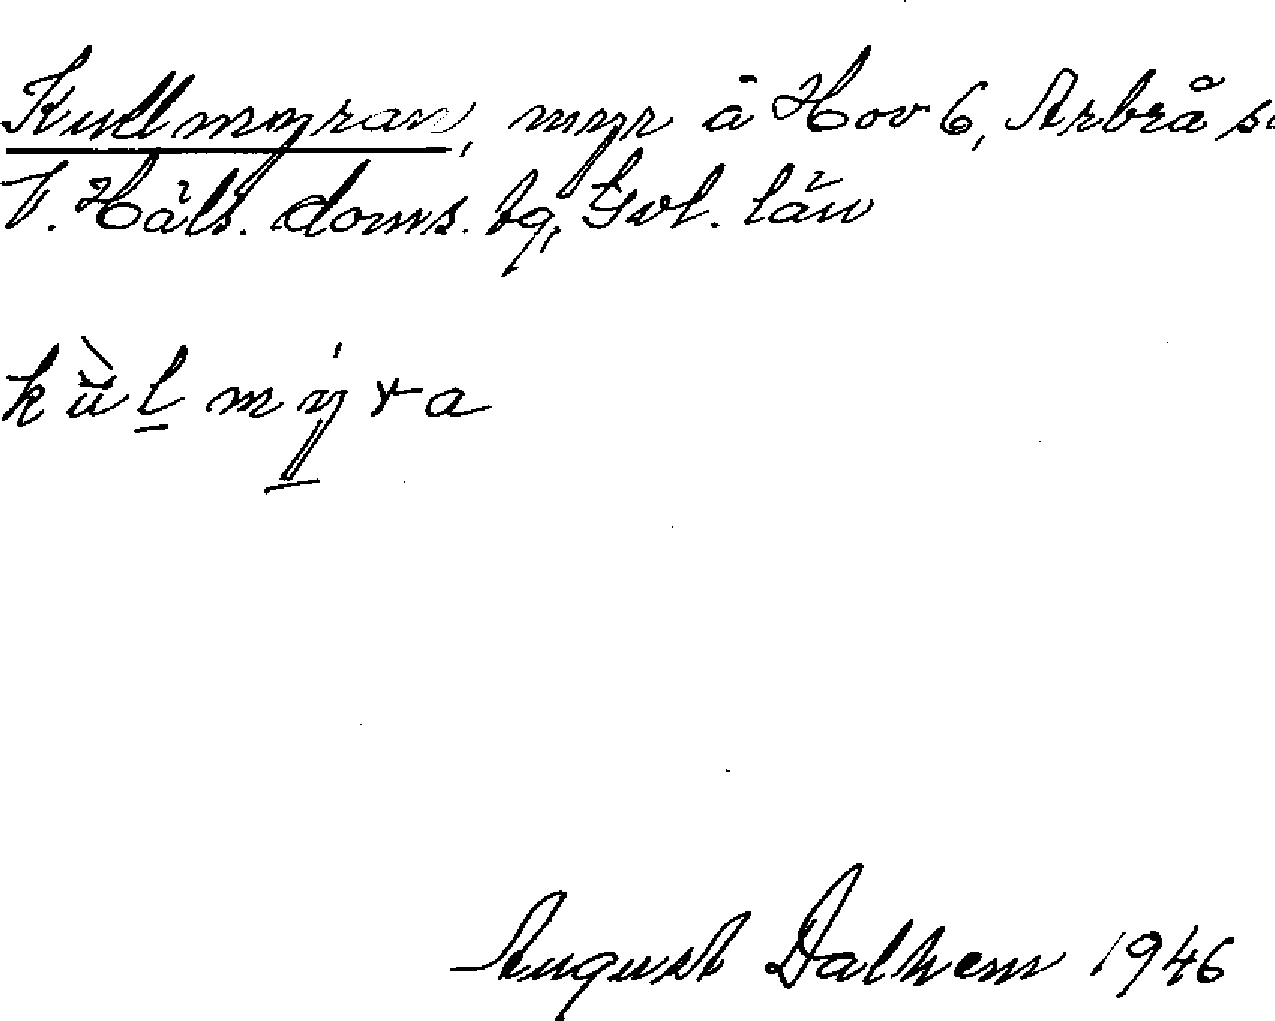 Kullmyran, myr å Hov 6, Arbrå s
V. Häls. doms. tg, Gvl. län
kùl mýra
August Dalhem 1946